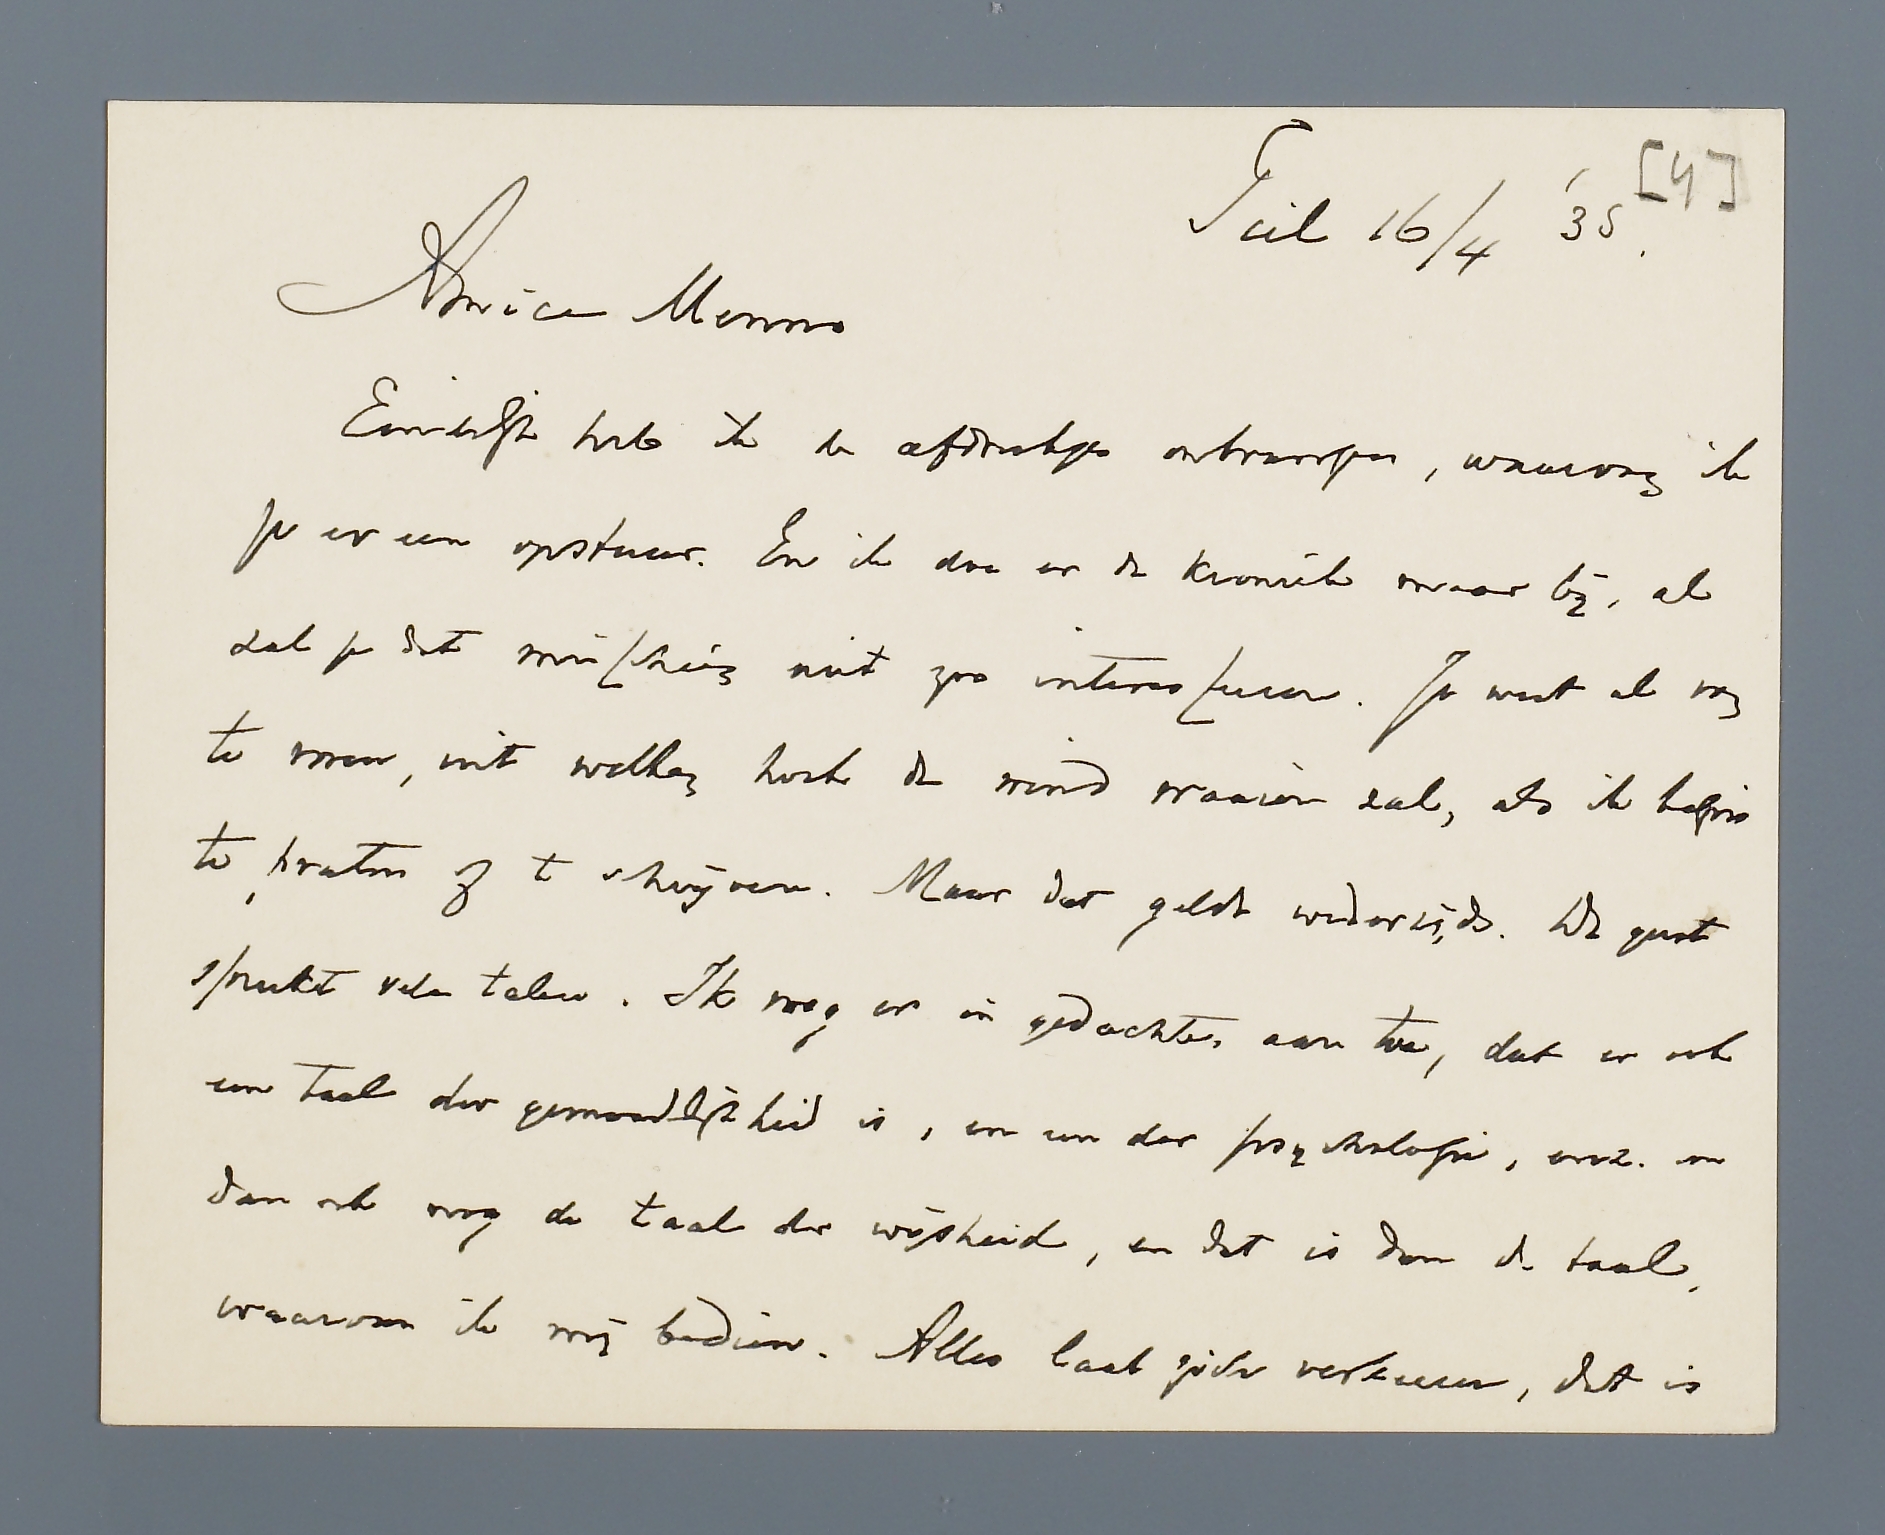 [4]
Tiel 16/4 '35.
Amice Menno
Eindelijk heb ik de afdrukjes ontvangen, waarvan ik
je er een opstuur. En ik doe er de kroniek maar bij, al
zal je dat misschien niet zoo interesseeren. Je weet al van
te voren, uit welken hoek de wind waaien zal, als ik begin
te praten of te schrijven. Maar dat geldt wederzijds. De geest
spreekt vele talen. Ik voeg er in gedachten aan toe, dat er ook
een taal der gemoedelijkheid is, en een der psychologie, enz. en
dan ook nog de taal der wijsheid, en dat is dan de taal,
waarvan ik mij bedien. Alles laat zich verkeeren, dat is